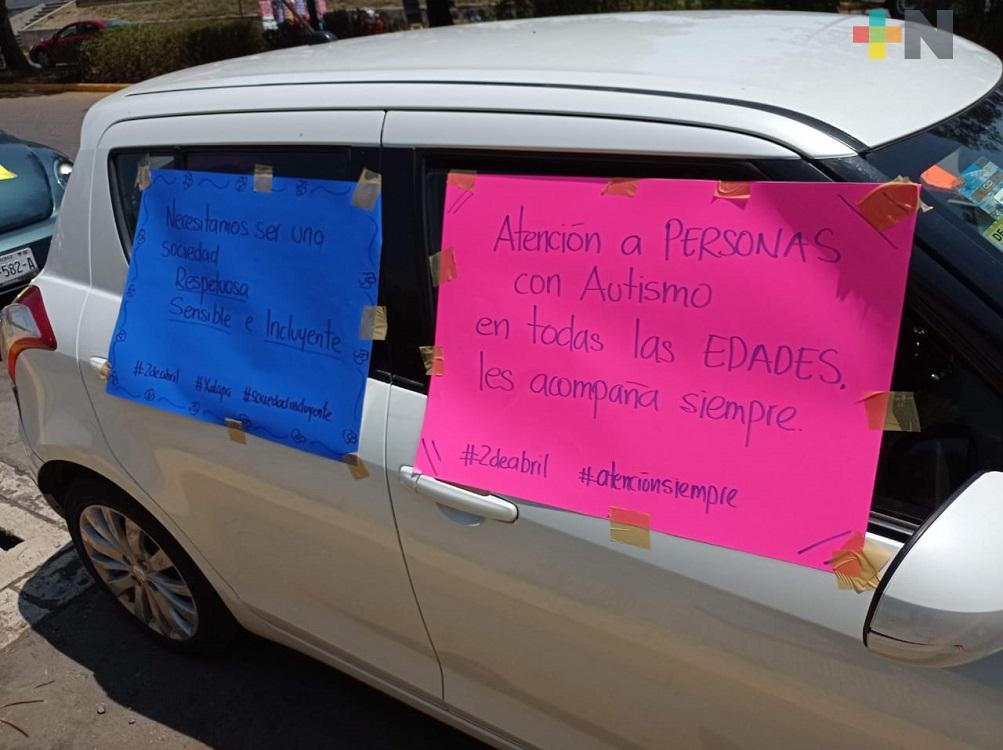 +N
Necesitamos ser una
sociedad
Respetuosa
Sensible e Incluyente
#2deabril #Xalapa #sociedadincluyente
Atención a PERSONAS
con Autismo
en todas las EDADES,
les acompaña siempre.
#2deabril #atenciónsiempre
582-A